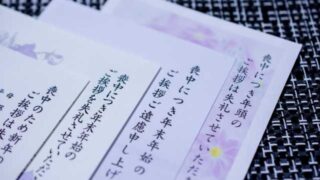 喪中につき年頭の
ご挨拶は失礼させていただ
喪中につき年末年始の
ご挨拶ご遠慮申し上げ
喪中につき年末年始の
ご挨拶を失礼させていた
喪中のため新年の
ご挨拶は失